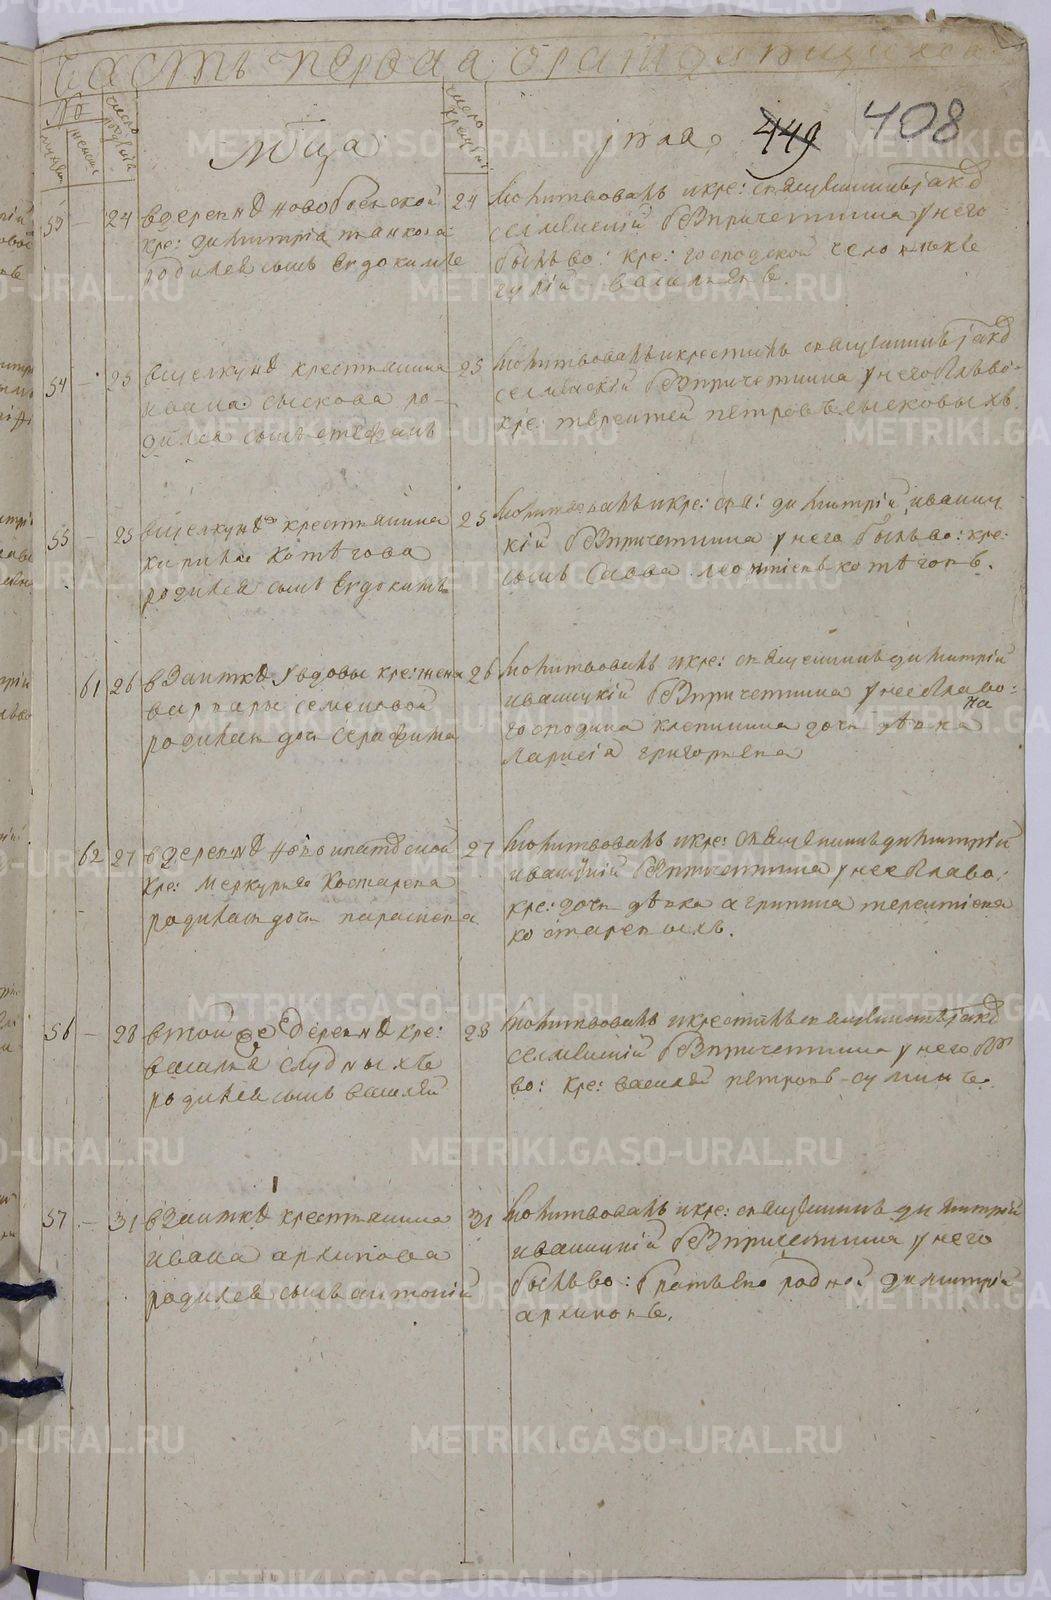 Часть первая о рождающихся
№
число рождения
число крещения
мужеска
женска
Мца
449 408
53 — 24 в деревнѣ ново
кре: димитрія
родился сынъ Евдокимъ
24 Молитвовалъ и кре: священникъ Іаковъ
безпричетника у него
былъ во: кре: господской человѣкъ
54 — 25 вщелкунѣ крестьянина
ивана сыскова ро-
дился сынъ стефанъ
25 Молитвовалъ и крестилъ священникъ Іаковъ
безпричетника у него былъ во:
кре: терентей петровъ сысковыхъ.
55 — 25 вщелкунѣ крестьянина
кирила котѣгова
родился сынъ Евдокимъ
25 Молитвовалъ и кре: свя: димитрій иваниц-
кій безпричетника у него былъ во: кре:
сынъ Савва леонтіевъ котѣговъ.
61 26 взаимкѣ у вдовы кре: жена
варвары семеновой
родилась дочь серафима
26 Молитвовалъ и кре: священникъ димитрій
иваницкій безпричетника у нее была во:
господина клепинина дочь дѣвка
на
Лариса григорьевна
62 27 в деревнѣ новоипатовской
кре: Меркурья Костарева
родилась дочь параскева
27 Молитвовалъ и кре: священникъ димитрій
иваницкій безпричетника у нее была во:
кре: дочь дѣвка агрипина терентіева
костаревыхъ.
56 — 28 втойже деревнѣ кре:
василья слудныхъ
родился сынъ василей
28 Молитвовалъ и крестилъ священникъ Іаковъ
безпричетника у него
во: кре: василей петровъ
57 — 31 взаимкѣ крестьянина
ивана архипова
родился сынъ антоній
31 Молитвовалъ и кре: священникъ димитрій
иваницкій безпричетника у него
былъ во: братъ ево родной димитрій
архиповъ.
METRIKI.GASO-URAL.RU